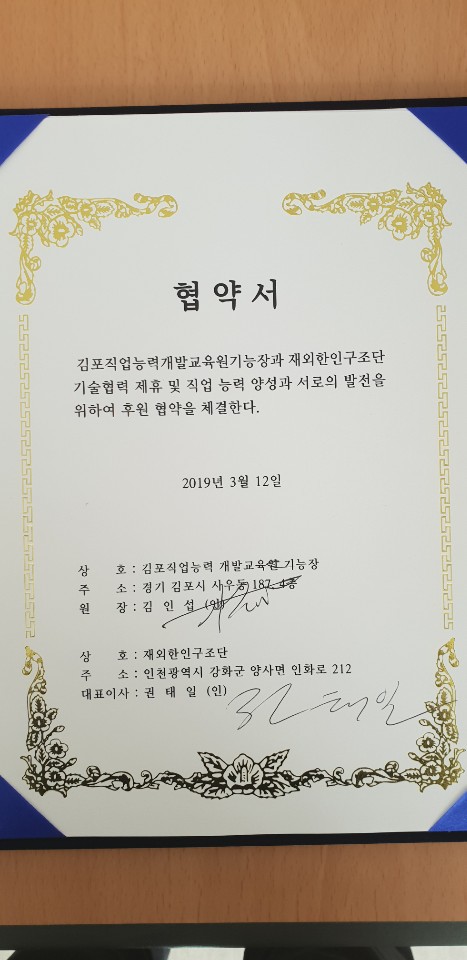 협약서
김포직업능력개발교육원기능장과 재외한인구조단
기술협력 제휴 및 직업 능력 양성과 서로의 발전을
위하여 후원 협약을 체결한다.
2019년 3월 12일
상 호 : 김포직업능력 개발교육원 기능장
주 소 : 경기 김포시 사우동 187. 4층
원 장 : 김 인 섭 (인)
상 호 : 재외한인구조단
주 소 : 인천광역시 강화군 양사면 인화로 212
대표이사 : 권 태 일 (인)
권태일